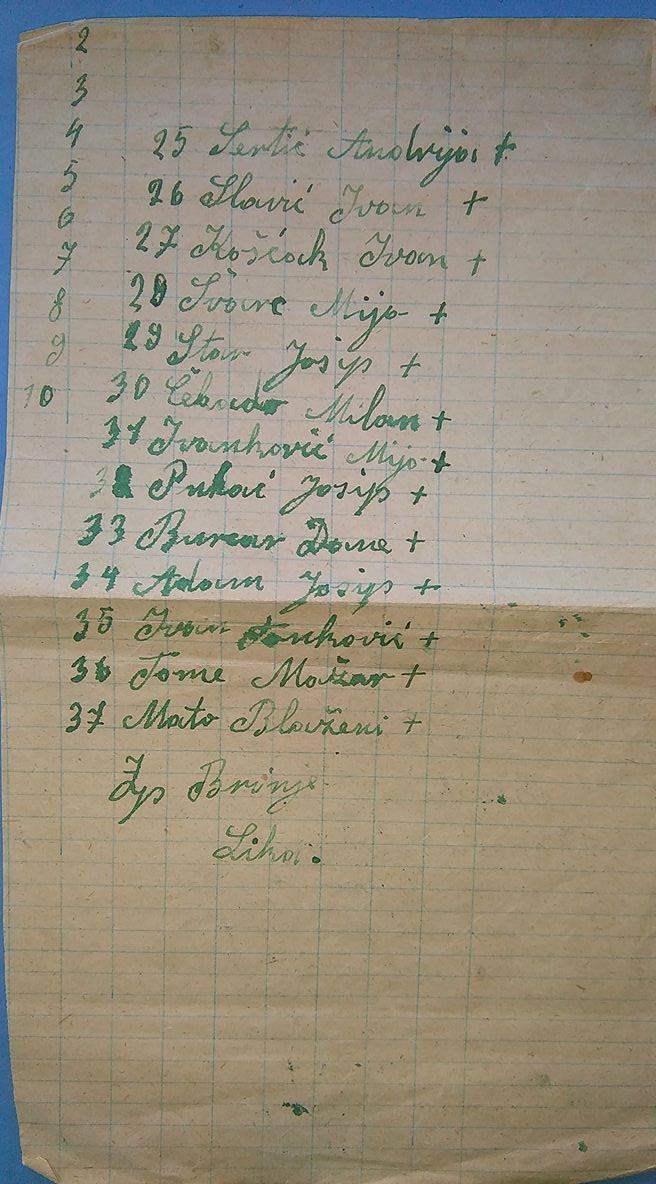 2
3
4
5
6
7
8
9
10
25 Sertić Andrija +
26 Slavić Ivan +
27 Košćak Ivan +
28 Švarc Mijo +
29 Star Josip +
30 Milan +
31 Ivanković Mijo +
32 Pukać Josip +
33 Burcar Dane +
34 Adam Josip +
35 Ivan Tonković +
36 Tome Mažar +
37 Mato Blaženi +
Brinje
Lika.